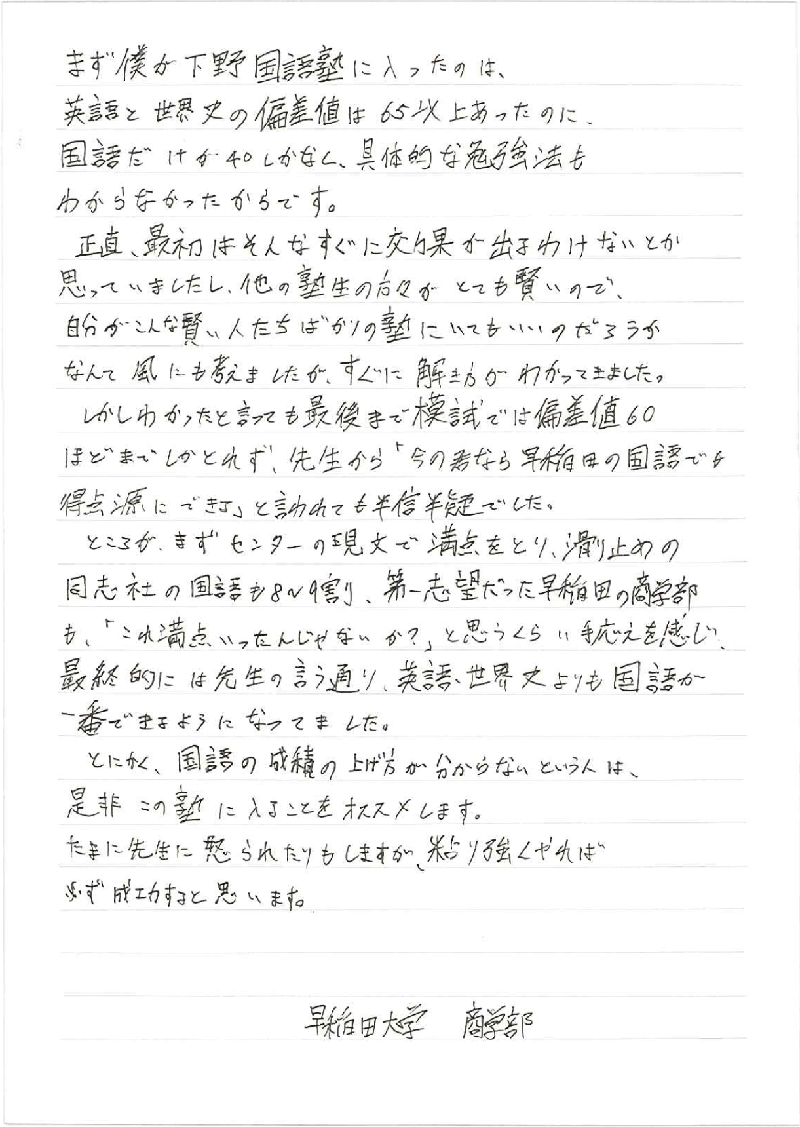 まず僕が下野国語塾に入ったのは、
英語と世界史の偏差値は65以上あったのに、
国語だけが40しかなく、具体的な勉強法も
わからなかったからです。
正直、最初はそんなすぐに効果が出るわけないとか
思っていましたし、他の塾生の方々がとても賢いので、
自分がこんな賢い人たちばかりの塾にいてもいいのだろうか
なんて風にも考えましたが、すぐに解き方がわかってきました。
しかしわかったと言っても最後まで模試では偏差値60
ほどまでしかとれず、先生から「今の君なら早稲田の国語でも
得点源にできる」と言われても半信半疑でした。
ところが、まずセンターの現文で満点をとり、滑り止めの
同志社の国語も8〜9割、第一志望だった早稲田の商学部
も、「これ満点いったんじゃないか?」と思うくらい手応えを感じ、
最終的には先生の言う通り、英語・世界史よりも国語が
一番できるようになってました。
とにかく、国語の成績の上げ方が分からないという人は、
是非この塾に入ることをオススメします。
たまに先生に怒られたりもしますが、粘り強くやれば
必ず成功すると思います。
早稲田大学 商学部